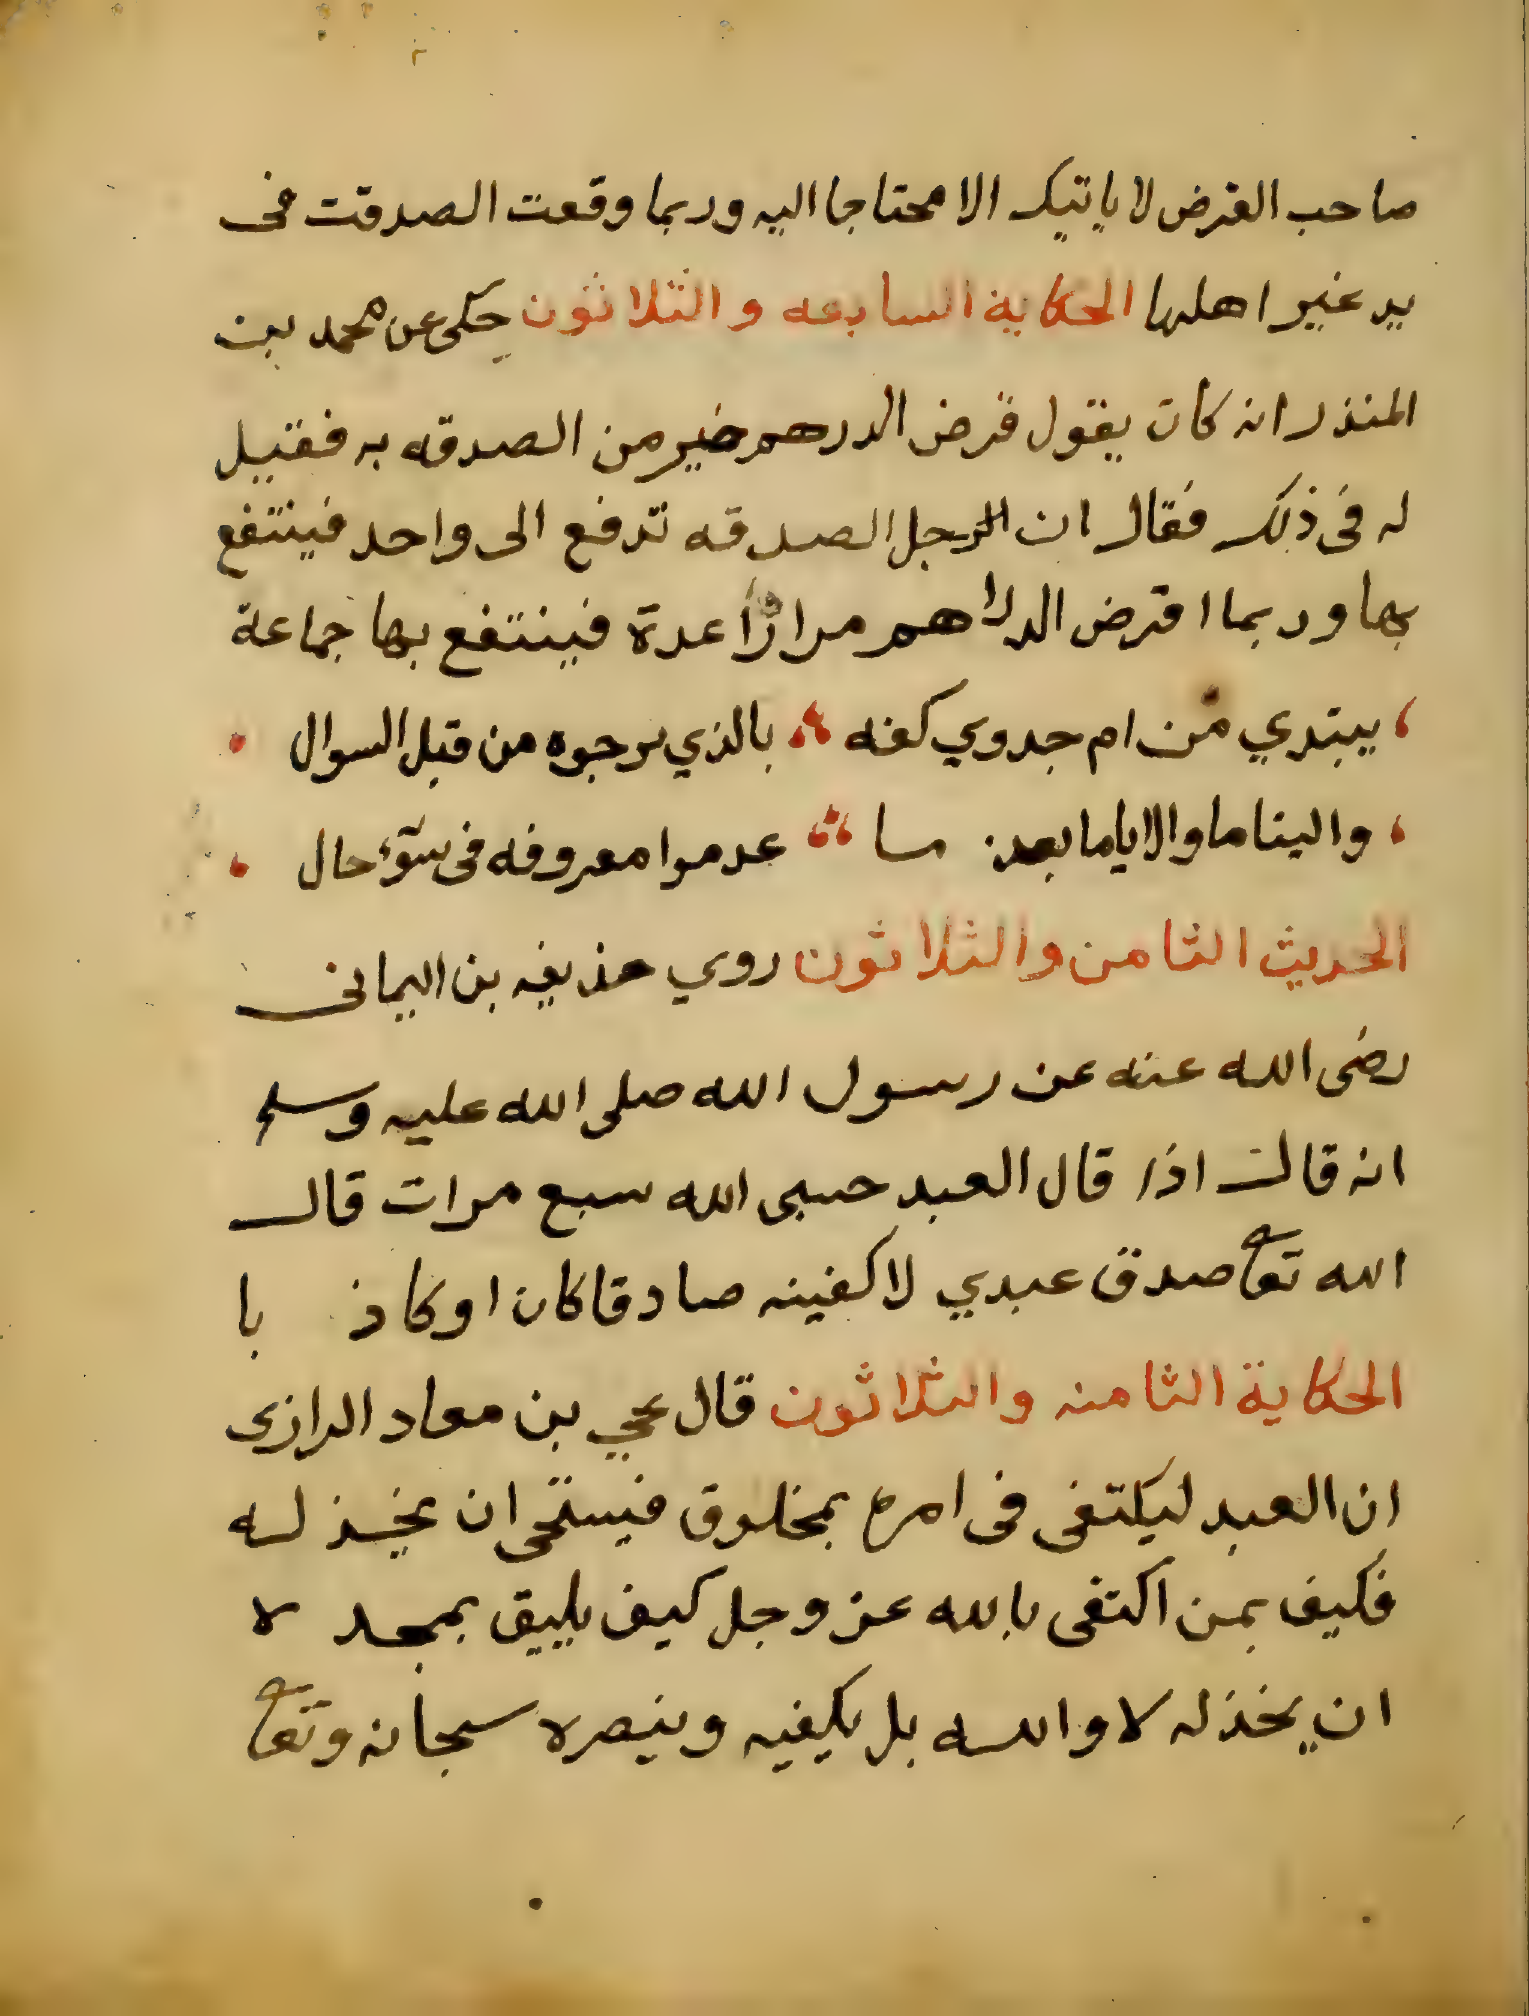 صاحب القرض لا ياتيك الا محتاجا اليه وربما وقعت الصدقت فى
يد غير اهلها الحكاية السابعه والثلاثون حكى عن محمد بن
المنذر انه كان يقول قرض الدرهم خير من الصدقه به فقيل
له فى ذلك فقال ان الرجل الصدقه تدفع الى واحد فينتفع
بها وربما اقرض الدراهم مرارًا عدة فينتفع بها جماعة
يبتدي من ام جدوي كفه بالذي يرجوه من قبل السوال
والينا ما والايا ما بعد ما عدموا معروفه فى سوء حال
الحديث الثامن والثلاثون روي حذيفه بن اليمانى
رضى الله عنه عن رسول الله صلى الله عليه وسلم
انه قال اذا قال العبد حسبى الله سبع مرات قال
الله تعا صدق عبدي لاكفينه صادقا كان او كاذ با
الحكاية الثامنه والثلاثون قال يحي بن معاد الرازى
ان العبد ليكتفى فى امره بمخلوق فيستحى ان يخذ له
فكيف بمن اكتفى بالله عز وجل كيف يليق بمجد ه
ان يخذله لا والله بل يكفيه وينصره سبحانه وتعا